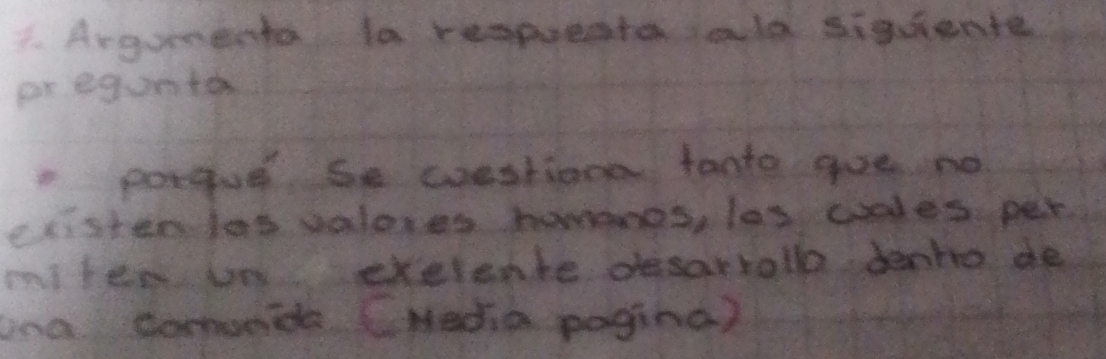 1. Argumenta la respuesta ala siguiente
pregunta
• porqué se cuestiona tanto que no
existen los valores humanos, los cuales per
miten un exelente desarrollo dentro de
una comunida (Media pagina)